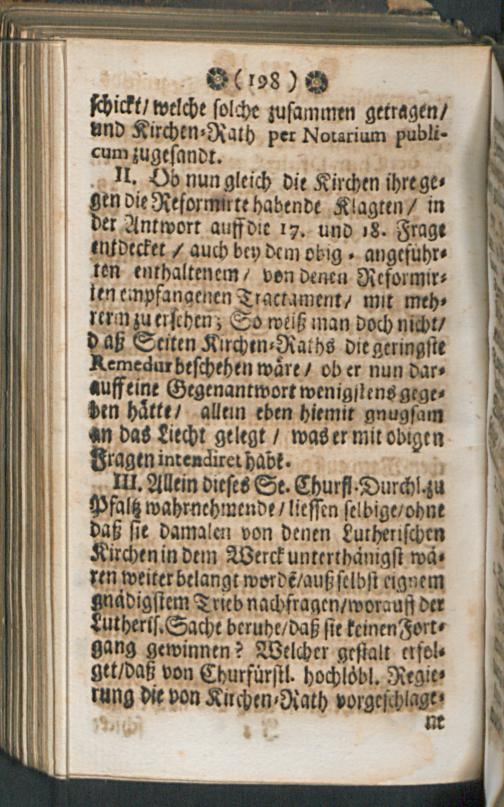 (198)
schickt/ welche solche zusammen getragen/
und Kirchen-Rath per Notarium publi-
cum zugesandt.
II. Ob nun gleich die Kirchen ihre ge-
gen die Reformirte habende Klagten/ in
der Antwort auff die 17. und 18. Frage
entdecket / auch bey dem obig-angeführ-
ten enthaltenem/ von denen Reformir-
ten empfangenen Tractament/ mit meh-
rerm zu ersehen; So weiß man doch nicht/
daß Seiten Kirchen-Raths die geringste
Remedur beschehen wäre/ ob er nun dar-
auff eine Gegenantwort wenigstens gege-
ben hätte/ allein eben hiemit gnugsam
an das Liecht gelegt / was er mit obigen
Fragen intendiret habe.
III. Allein dieses Se. Churfl. Durchl. zu
Pfaltz wahrnehmende/ liessen selbige/ ohne
daß sie damalen von denen Lutherischen
Kirchen in dem Werck unterthänigst wä-
ren weiter belangt wordē/ auß selbst eignem
gnädigstem Trieb nachfragen/ worauff der
Lutheris. Sache beruhe/ daß sie keinen Fort-
gang gewinnen? Welcher gestalt erfol-
get/ daß von Churfürstl. hochlöbl. Regie-
rung die von Kirchen-Rath vorgeschlage-
ne